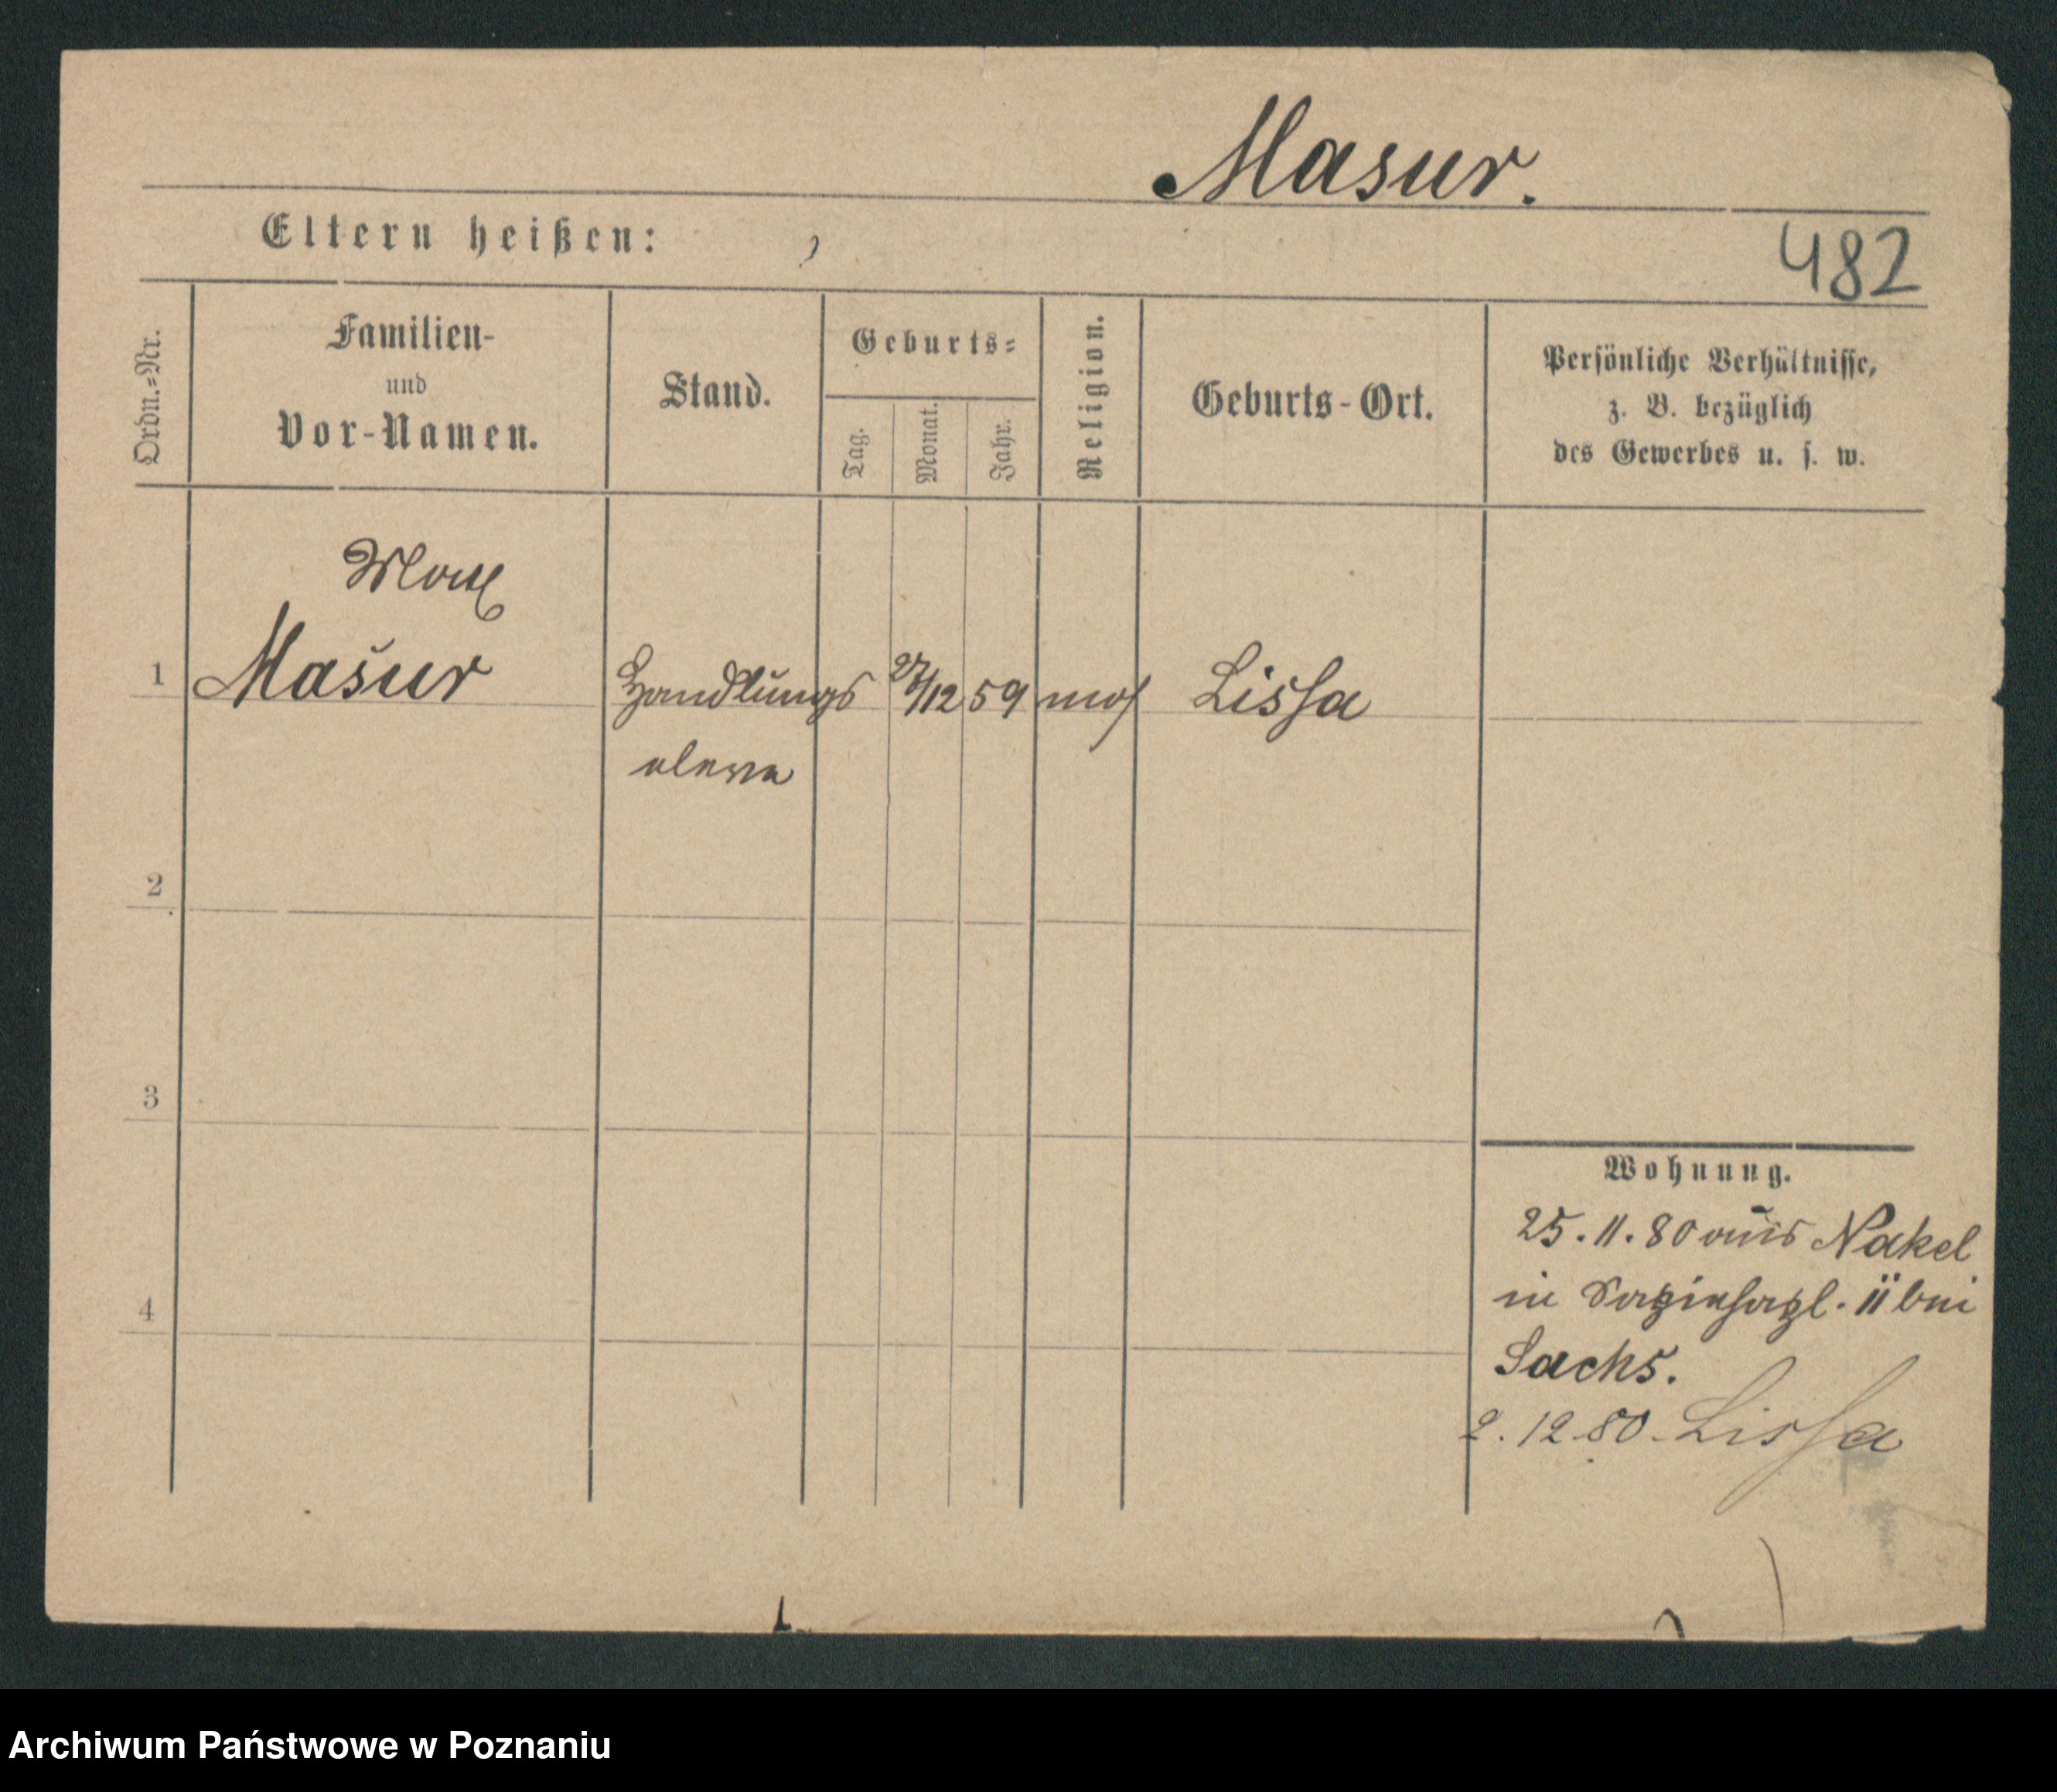 Masur.
Eltern heißen:
482
Ordn.-Nr.
Familien-
und
Vor-Namen.
Stand.
Geburts-
Tag.
Monat.
Jahr.
Religion.
Geburts-Ort.
Persönliche Verhältnisse,
z. B. bezüglich
des Gewerbes u. s. w.
Max
1 Masur Handlungs 27/12 59 mos Lissa
eleve
2
3
4
Wohnung.
25.11.80 aus Nakel
in 11 bei
Sachs.
2.12.80. Lissa
Archiwum Państwowe w Poznaniu